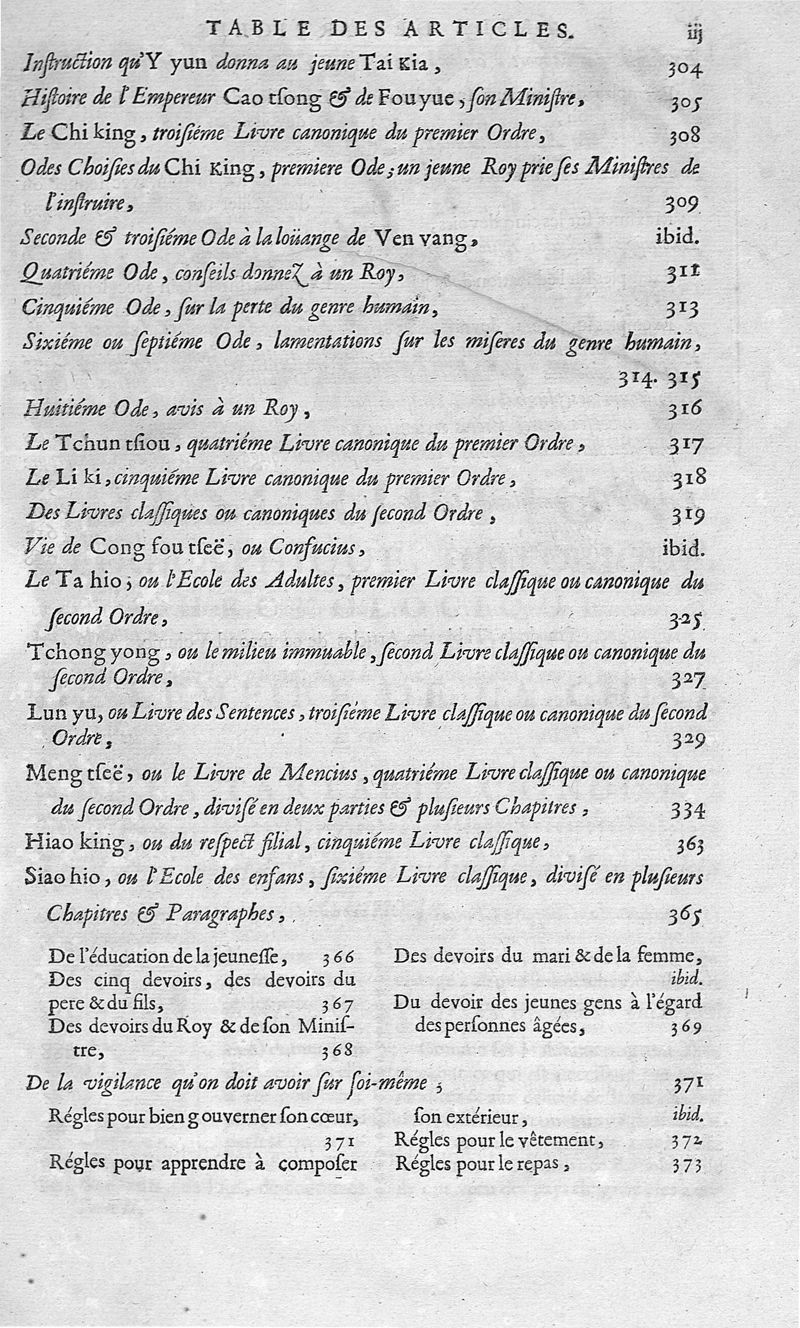 TABLE DES ARTICLES. iij
Inſtruction qu'Y yun donna au jeune Tai Kia, 304
Hiſtoire de l'Empereur Cao tſong & de Fou yue, ſon Miniſtre, 305
Le Chi king, troiſiéme Livre canonique du premier Ordre, 308
Odes Choiſies du Chi King, premiere Ode; un jeune Roy prie ſes Miniſtres de
l'inſtruire, 309
Seconde & troiſiéme Ode à la loüange de Ven vang, ibid.
Quatriéme Ode, conſeils donnez à un Roy, 311
Cinquiéme Ode, ſur la perte du genre humain, 313
Sixiéme ou ſeptiéme Ode, lamentations ſur les miſeres du genre humain,
314. 315
Huitiéme Ode, avis à un Roy, 316
Le Tchun tſiou, quatriéme Livre canonique du premier Ordre, 317
Le Li ki, cinquiéme Livre canonique du premier Ordre, 318
Des Livres claſſiques ou canoniques du ſecond Ordre, 319
Vie de Cong fou tſeë, ou Confucius, ibid.
Le Ta hio; ou l'Ecole des Adultes, premier Livre claſſique ou canonique du
ſecond Ordre, 325
Tchong yong, ou le milieu immuable, ſecond Livre claſſique ou canonique du
ſecond Ordre, 327
Lun yu, ou Livre des Sentences, troiſiéme Livre claſſique ou canonique du ſecond
Ordre, 329
Meng tſeë, ou le Livre de Mencius, quatriéme Livre claſſique ou canonique
du ſecond Ordre, diviſé en deux parties & pluſieurs Chapitres, 334
Hiao king, ou du reſpect filial, cinquiéme Livre claſſique, 363
Siao hio, ou l'Ecole des enfans, ſixiéme Livre claſſique, diviſé en pluſieurs
Chapitres & Paragraphes, 365
De l'éducation de la jeuneſſe, 366
Des cinq devoirs, des devoirs du
pere & du fils, 367
Des devoirs du Roy & de ſon Miniſ-
tre, 368
Des devoirs du mari & de la femme,
ibid.
Du devoir des jeunes gens à l'égard
des perſonnes âgées, 369
De la vigilance qu'on doit avoir ſur ſoi-même; 371
Régles pour bien gouverner ſon cœur,
371
Régles pour apprendre à compoſer
ſon extérieur, ibid.
Régles pour le vêtement, 372
Régles pour le repas, 373